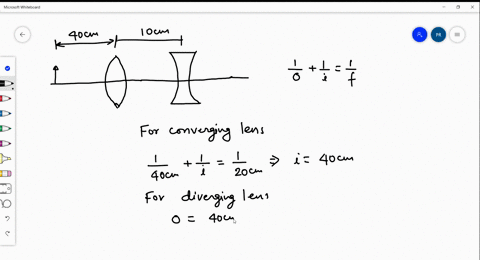 Microsoft Whiteboard
MI
40cm 10cm
1/O + 1/i = 1/f
For converging lens
1/40cm + 1/i = 1/20cm ⇒ i = 40cm
For diverging lens
O = 40cm